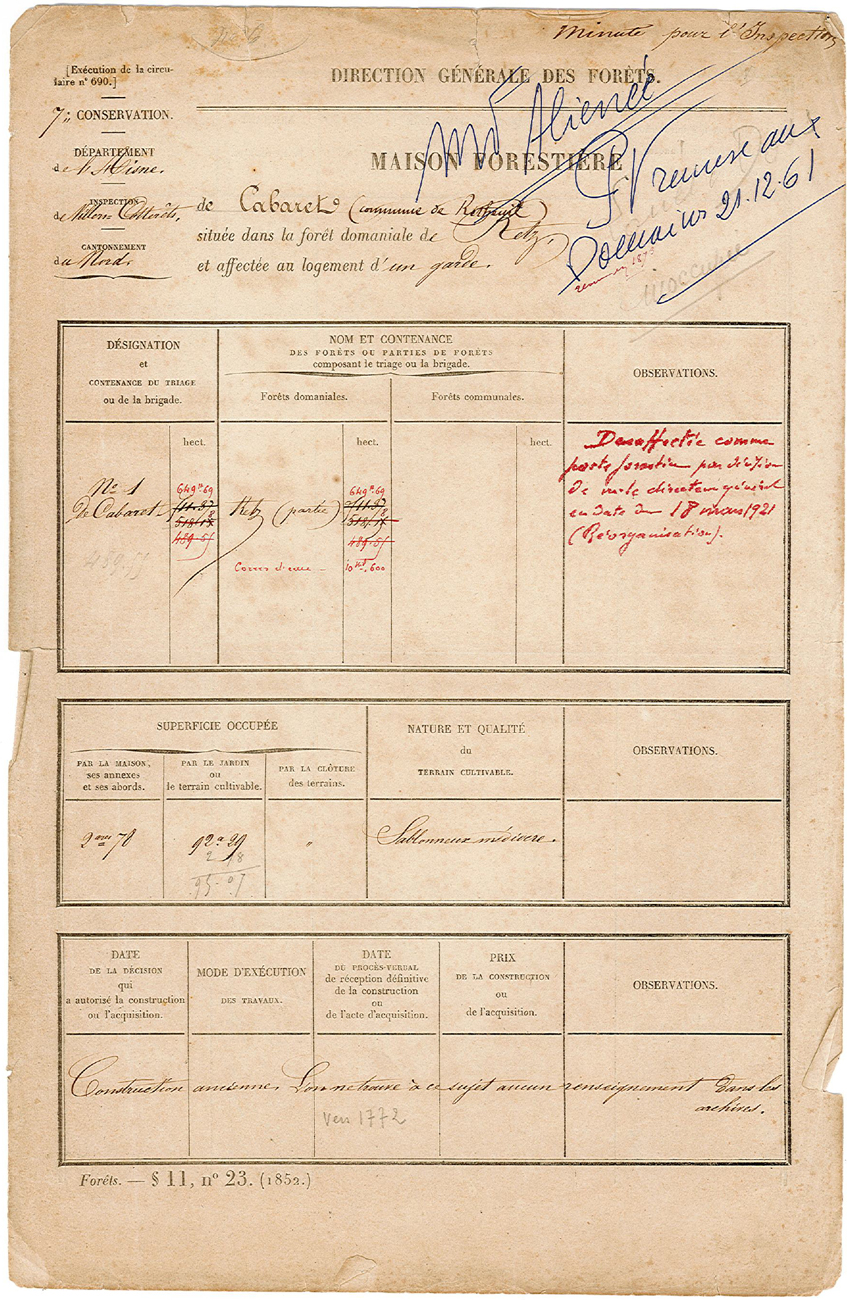 Minute pour l'Inspection
[Exécution de la circu-
laire n° 690.]
DIRECTION GÉNÉRALE DES FORÊTS.
7e CONSERVATION.
DÉPARTEMENT
de l'Aisne.
INSPECTION
de Villers Cotterêts,
CANTONNEMENT
du Nord.
Aliéné
PV remise aux
Domaines 21.12.61
MAISON FORESTIÈRE
de Cabaret (commune de Retheuil)
située dans la forêt domaniale de Retz,
et affectée au logement d'un garde.
inoccupée
DÉSIGNATION
et
CONTENANCE DU TRIAGE
ou de la brigade.
NOM ET CONTENANCE
DES FORÊTS OU PARTIES DE FORÊTS
composant le triage ou la brigade.
Forêts domaniales.
Forêts communales.
OBSERVATIONS.
hect.
hect.
hect.
N° 1
de Cabaret
649h.69
711.37
518/18
489.51
489.51
Retz (partie)
649h.69
711.37
518/18
489.51
Cours d'eau
10 kil. 600
Desaffectée comme
poste forestier par décision
de m. le directeur général
en date du 18 mars 1921
(Réorganisation).
SUPERFICIE OCCUPÉE
PAR LA MAISON,
ses annexes
et ses abords.
PAR LE JARDIN
ou
le terrain cultivable.
PAR LA CLÔTURE
des terrains.
NATURE ET QUALITÉ
du
TERRAIN CULTIVABLE.
OBSERVATIONS.
2 ares 78
92a 29
2 78
95.07
"
Sablonneux médiocre.
DATE
DE LA DÉCISION
qui
a autorisé la construction
ou l'acquisition.
MODE D'EXÉCUTION
DES TRAVAUX.
DATE
DU PROCÈS-VERBAL
de réception définitive
de la construction
ou
de l'acte d'acquisition.
PRIX
DE LA CONSTRUCTION
ou
de l'acquisition.
OBSERVATIONS.
Construction ancienne. L'on ne trouve à ce sujet aucun renseignement dans les
archives.
Vers 1772
Forêts. — § 11, n° 23. (1852.)